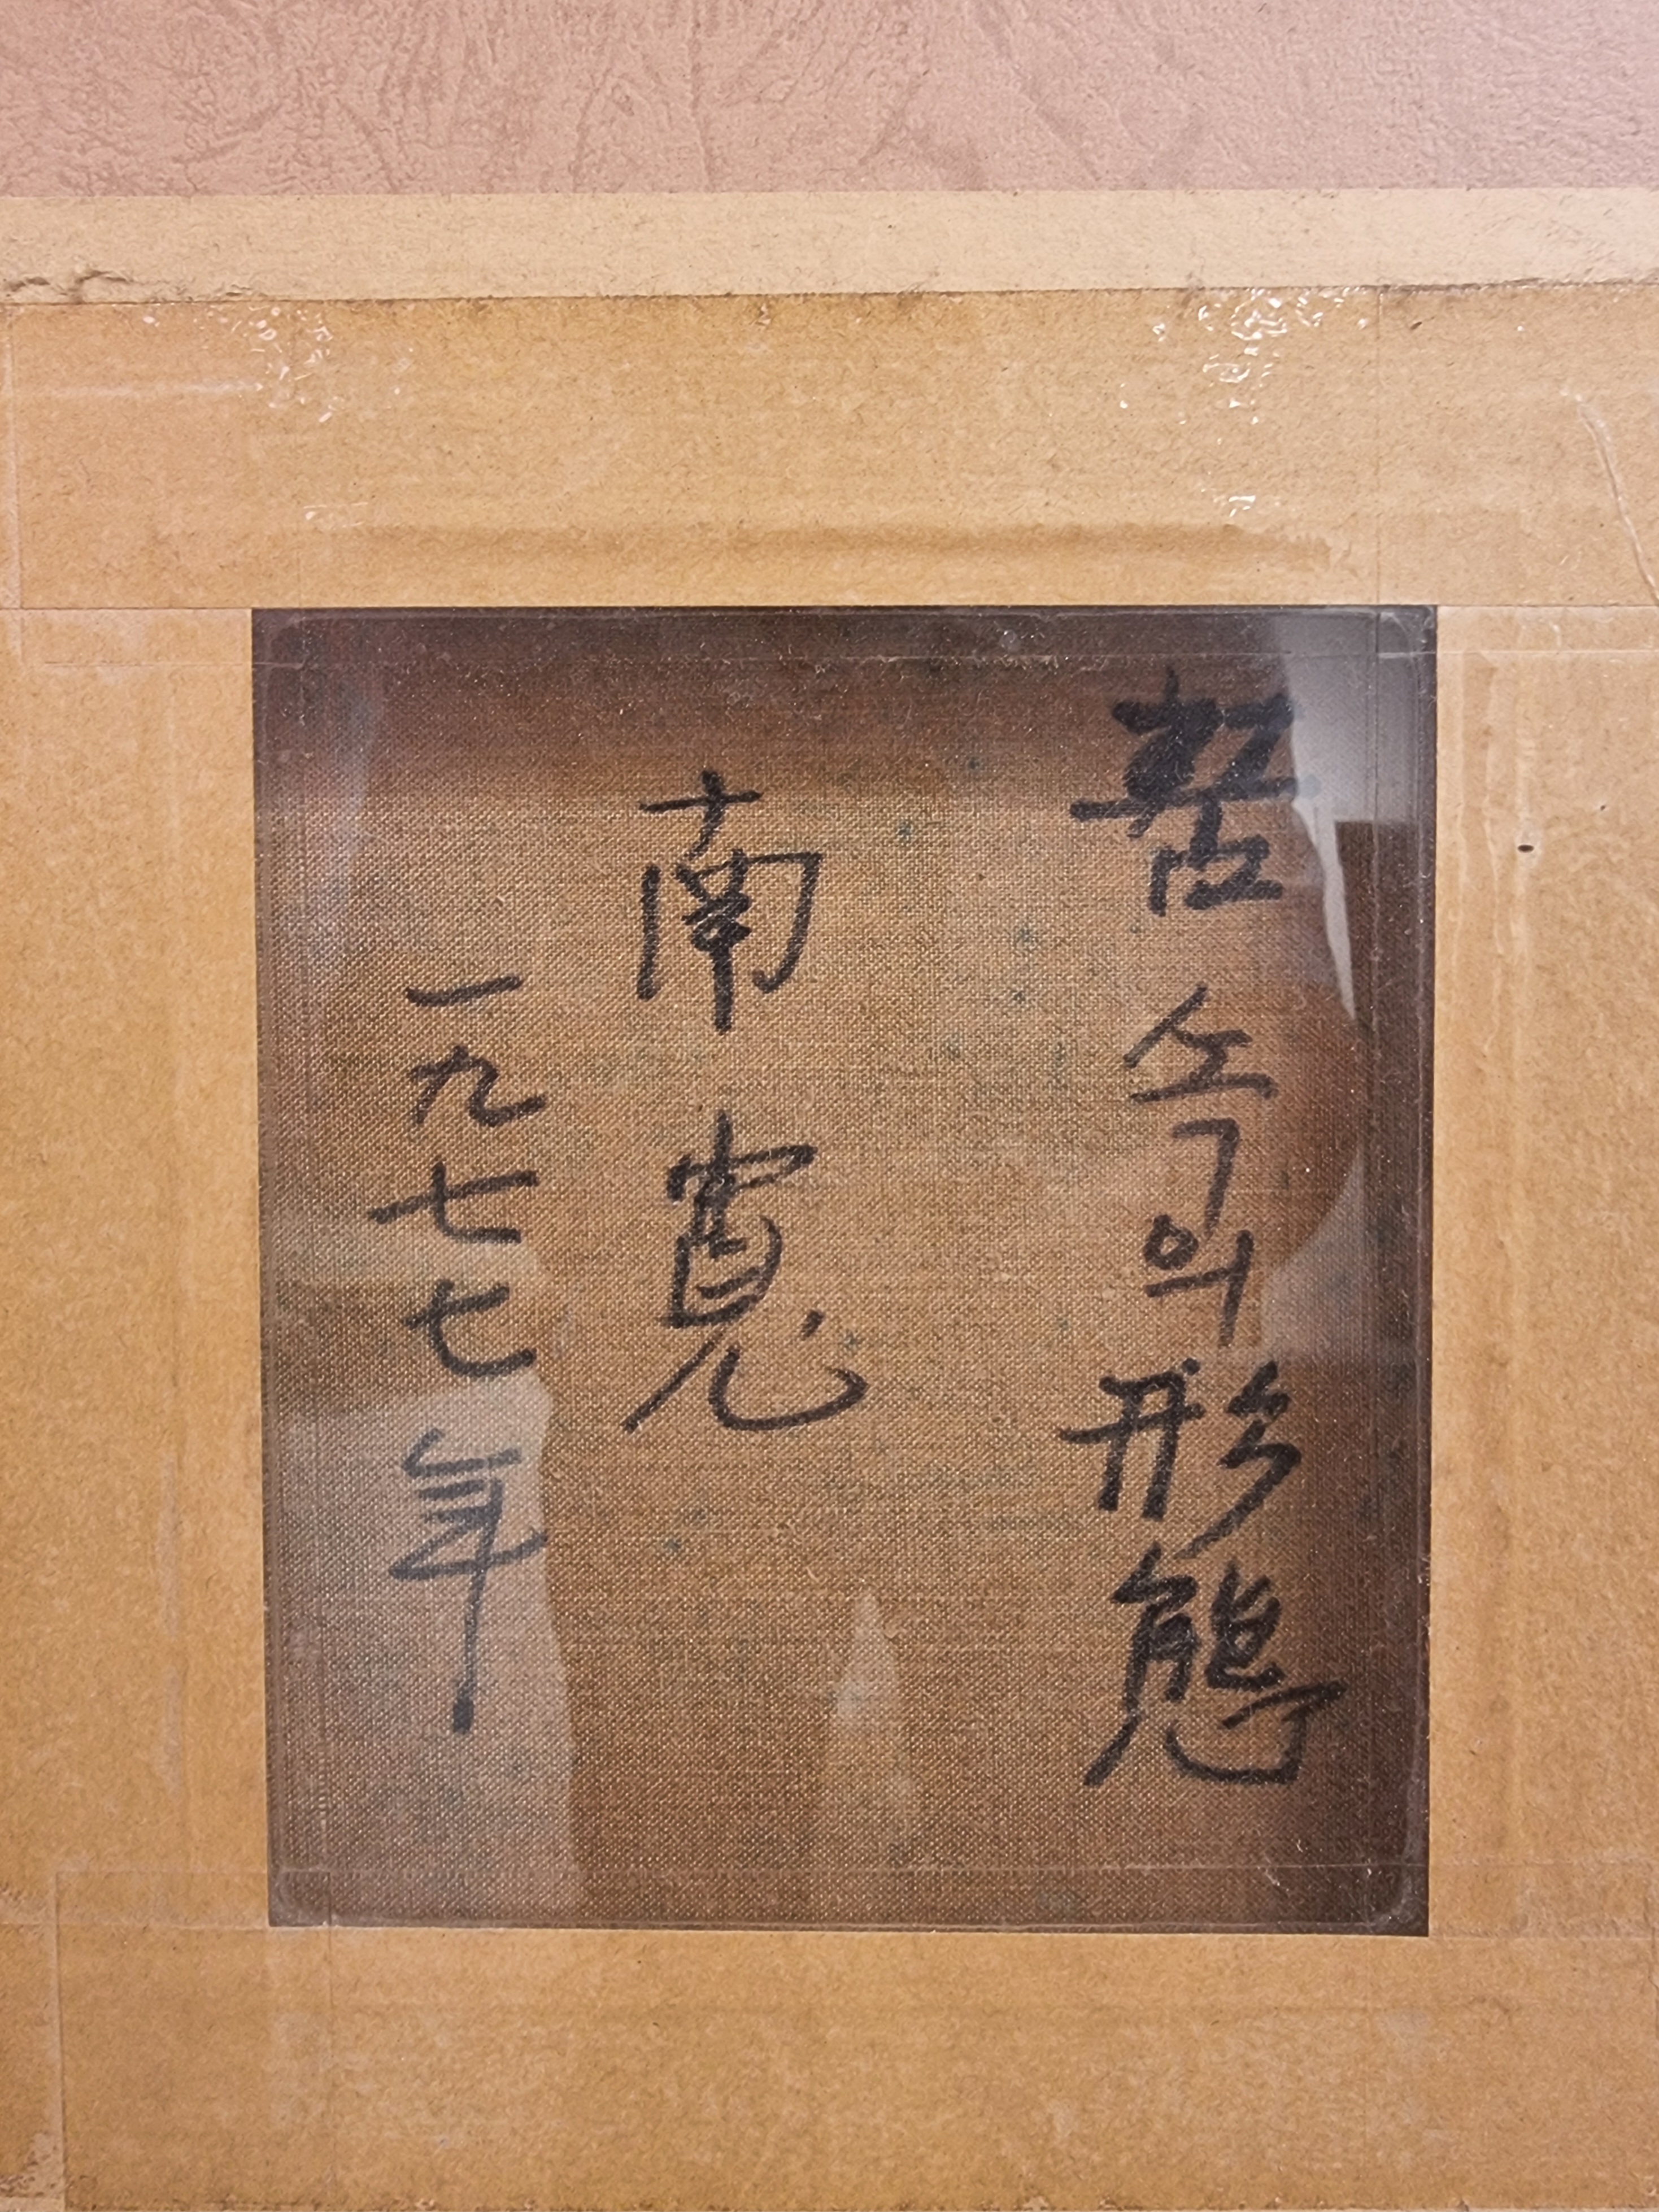 속의 形態
南寬
一九七七年